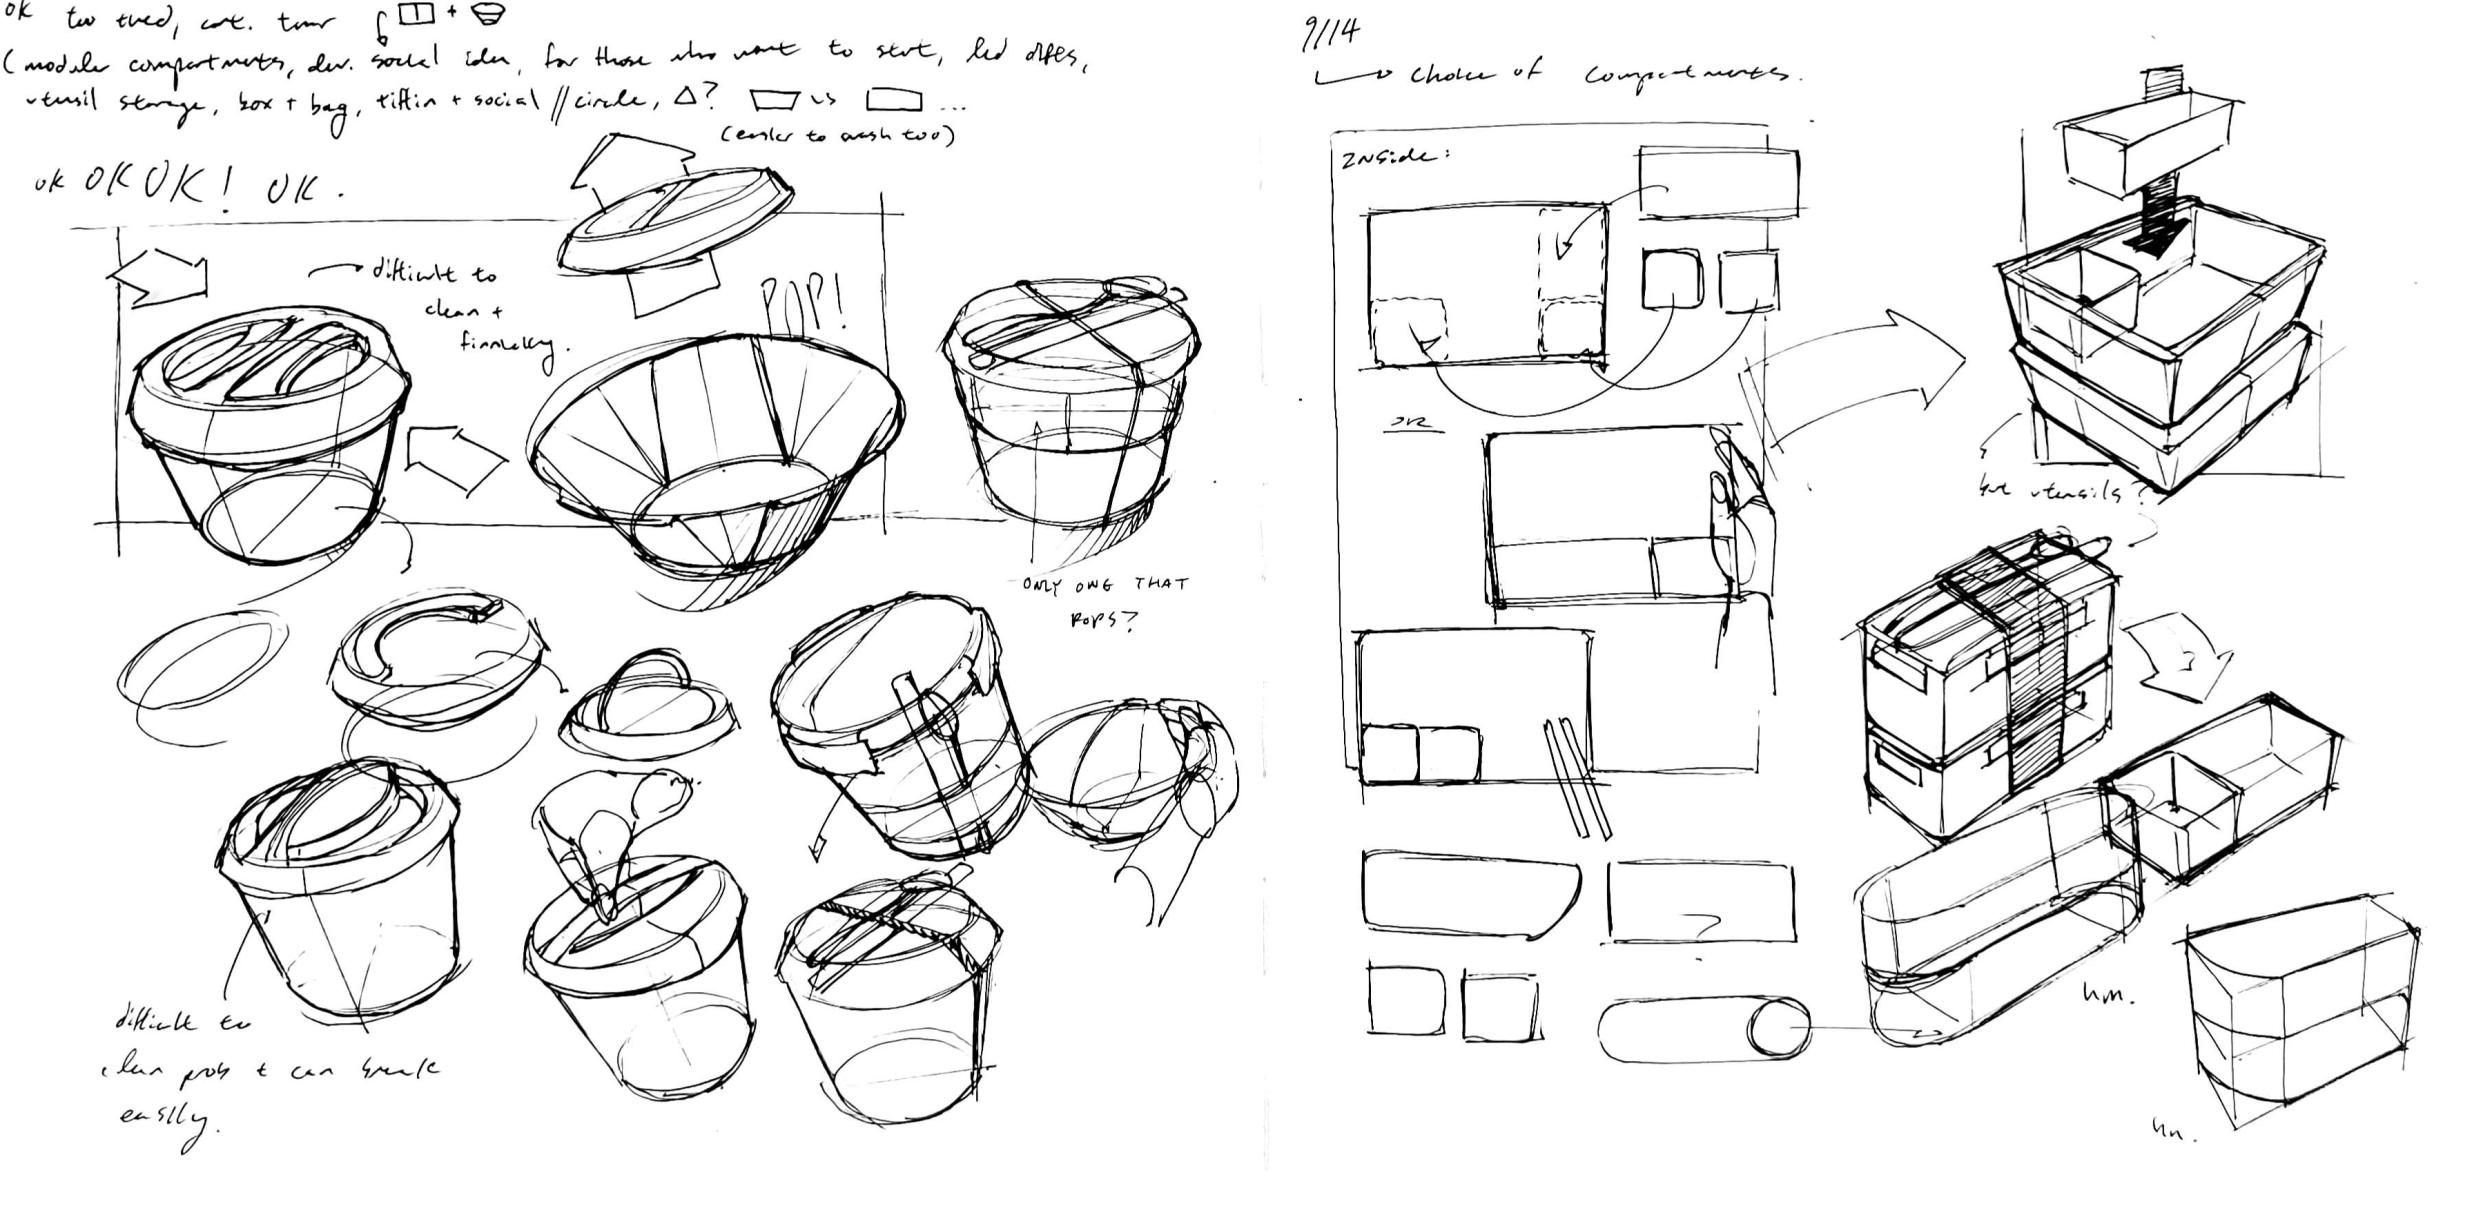 ok too tired, cont. tmr
(modular compartments, dev. social idea, for those who want to start, lid diffs,
utensil storage, box + bag, tiffin + social // circle, △? vs ...
(easier to wash too)
ok OK OK! OK.
difficult to
clean +
finnicky.
POP!
ONLY ONE THAT
POPS?
difficult to
clean prob + can break
easily.
9/14
choice of compartments.
INSide:
or
but utensils?
?
?
hm.
hm.